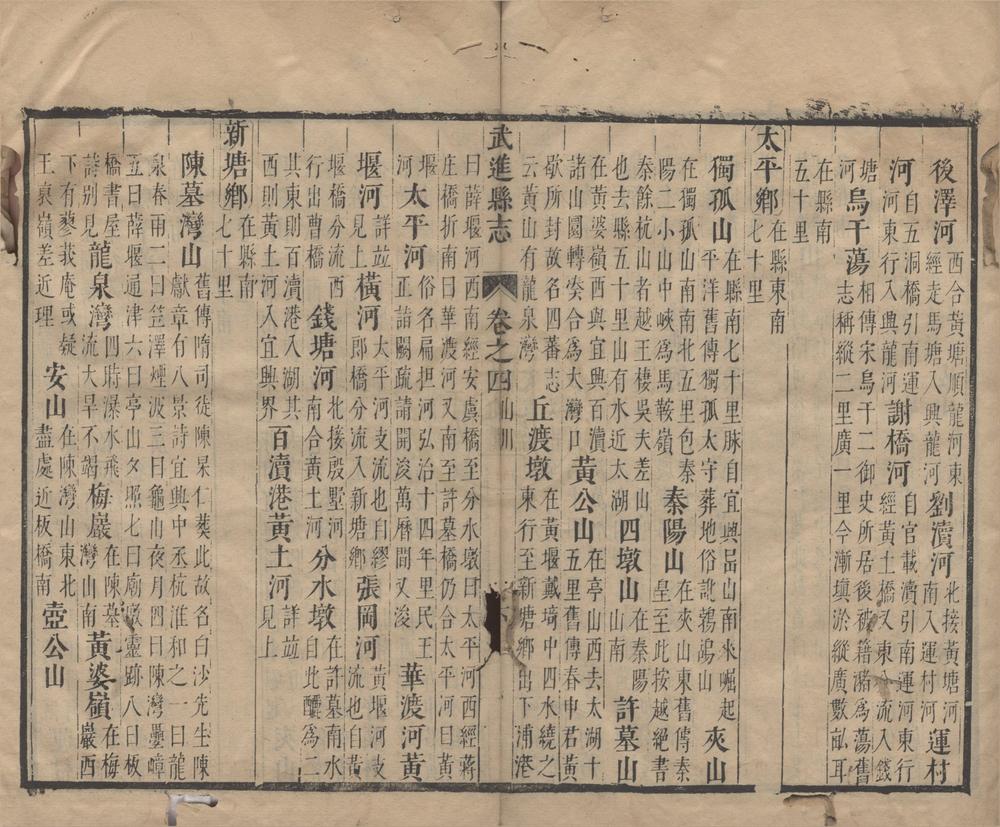 後澤河西合黃塘順龍河東經走馬塘入興龍河劉瀆河北接黃塘河南入運村河運村
河自五洞橋引南運河東行入興龍河謝橋河自官載濟引南運河東行經黃土橋又東分流入錢
塘河烏千蕩相傳宋烏千二御史所居後破籍瀦為蕩舊志稱縱二里廣一里今漸填淤縱廣數畝耳
在縣南五十里
太平鄉在縣東南七十里
獨孤山在縣南七十里脉自宜興呂山南來崛起平洋舊傳獨孤太守葬地俗訛鵓鴣山夾山
在獨孤山南南北五里包秦陽二小山中峽為馬鞍嶺秦陽山在夾山東舊傳秦皇至此按越絕書
秦餘杭山者越王棲吳夫差山也去縣五十里山有水近太湖四墩山在秦陽山南許墓山
在黃婆嶺西與宜興百瀆諸山圜轉湊合為大灣口黃公山在亭山西去太湖十五里舊傳春申君黃
歇所封故名四蕃志云黃山有龍泉灣丘渡墩在黃堰戴埼中四水繞之東行至新塘鄉出下浦港
武進縣志 卷之四 山川
曰薛堰河西南經安虞橋至分水墩曰太平河西經蔣莊橋折南曰華渡河又南至許墓橋仍合太平河曰黃
堰河太平河俗名扁担河弘治十四年里民王正請闢疏請開浚萬曆間又浚華渡河黃
堰河詳並見上橫河太平河支流也自繆郎橋分流入新塘鄉張岡河黃堰河支流也自黃
堰橋分流西行出曹橋錢塘河北接殷墅河南合黃土河分水墩在許墓南水自此釃為二
其東則百瀆港入湖其西則黃土河入宜興界百瀆港黃土河詳並見上
新塘鄉在縣南七十里
陳墓灣山舊傳隋司徒陳杲仁葬此故名白沙先生陳獻章有八景詩宜興中丞杭淮和之一曰龍
泉春雨二曰笠澤煙波三曰龜山夜月四曰陳灣壘嶂五曰薛堰通津六曰亭山夕照七曰廟墩靈跡八曰板
橋書屋詩別見龍泉灣四時瀑水飛流大旱不竭梅巖在陳墓灣山南黃婆嶺在梅巖西
下有蓼莪庵或疑王裒嶺差近理安山在陳灣山東北盡處近板橋南壺公山